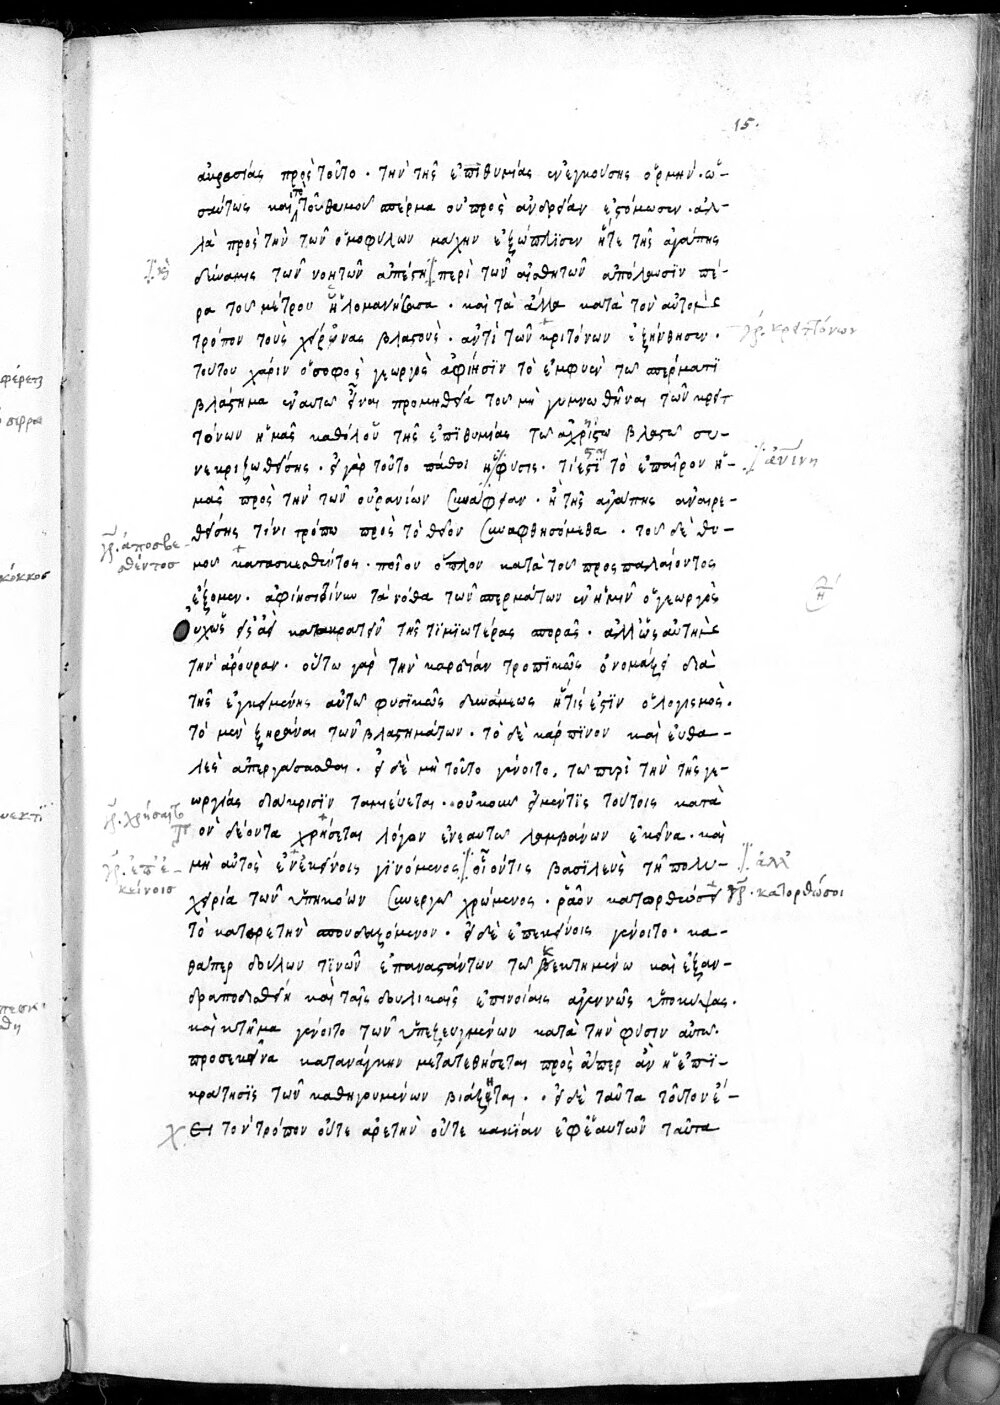 15.
αιρεσίας πρὸς τοῦτο . τὴν τῆς ἐπιθυμίας ἐνεγκούσης ὁρμήν . ὡ-
σαύτως καὶ τὸ τοῦ θυμοῦ σπέρμα οὐ πρὸς ἀνδρείαν ἐστόμωσεν . ἀλ-
λὰ πρὸς τὴν τῶν ὁμοφύλων μάχην ἐξώπλισεν ἥτε τῆς ἀγάπης
δύναμις τῶν νοητῶν ἀπέστη περὶ τῶν αἰσθητῶν ἀπόλαυσϊν πέ-
ρα τοῦ μέτρου ὑλομανήσασα . καὶ τὰ ἄλλα κατὰ τὸν αὐτὸν
τρόπον τοὺς χείρονας βλαστοὺς . ἀντὶ τῶν κριτόνων ἐξήνθησεν .
γρ. κρειττόνων
τούτου χάριν ὁ σοφὸς γεωργὸς ἀφίησϊν τὸ ἐμφυὲν τῷ σπέρματϊ
βλάστημα ἐν αυτῷ εἶναι προμηθείᾳ τοῦ μὴ γυμνωθῆναι τῶν κρειτ
τόνων ἡμᾶς καθόλου τῆς ἐπϊθυμίας τῷ ἀχρήστῳ βλαστῷ συ-
νεκριζωθείσης . εἰ γὰρ τοῦτο πάθοι ἡ φύσις . τί ἐστϊ τὸ ἐπαῖρον ἡ-
μᾶς πρὸς τὴν τῶν οὐρανίων συνάφειαν . ἢ τῆς ἀγάπης ἀναιρε-
θείσης τίνι τρόπῳ πρὸς τὸ θεῖον συναφθησόμεθα . τοῦ δὲ θυ-
γρ. ἀποσβε-
σθέντος
μοῦ κατασκεσθέντος . ποῖον ὅπλον κατὰ τοῦ προσπαλαίοντος
ἕξομεν . ἀφίησι τοίνυν τὰ νόθα τῶν σπερμάτων ἐν ἡμῖν ὁ γεωργὸς
οὐχ ὡς εἰς ἀεὶ κατακρατεῖν τῆς τϊμϊωτέρας σπορᾶς . ἀλλ' ὡς αὐτὴν
τὴν ἄρουραν . οὕτω γὰρ τὴν καρδίαν τροπϊκῶς ὀνομάζει διὰ
τῆς ἐγκειμένης αὐτῷ φυσϊκῶς δυνάμεως ἥτίς ἐστϊν ὁ λογισμὸς.
τὸ μὲν ξηρᾶναι τῶν βλαστημάτων . τὸ δὲ κάρπϊνον καὶ εὐθα-
λὲς ἀπεργάσασθαι . εἰ δὲ μὴ τοῦτο γένοιτο . τῷ πυρὶ τὴν τῆς γε-
ωργίας διάκρισϊν ταμιεύεται . οὐκοῦν εἰ μέντϊς τούτοις κατὰ
γρ. χρήσαιτο
τὸν δέοντα χρήσεται λόγον ἐν ἑαυτῷ λαμβάνων ἐκεῖνα . καὶ
γρ. ἐπ' ἐ-
κείνοις
μὴ αὐτὸς ἐν ἐκείνοις γϊνόμενος οἷόν τις βασϊλεὺς τῇ πολυ-
ἀλλ'
χειρία τῶν ὑπηκόων συνεργῷ χρώμενος . ῥᾷον κατορθώσει
γρ. κατορθώσοι
τὸ κατ' ἀρετὴν σπουδαζόμενον . εἰ δὲ ἐπ' ἐκείνοις γένοιτο . κα-
θάπερ δούλων τϊνῶν ἐπαναστάντων τῷ κεκτημένῳ καὶ ἐξαν-
δραποδισθείη καὶ ταῖς δουλικαῖς ἐπινοίαις ἀγεννῶς ὑποκύψας .
καὶ κτῆμα γένοιτο τῶν ὑπεζευγμένων κατὰ τὴν φύσιν αὐτῷ.
πρὸς ἐκεῖνα κατανάγκην μετατεθήσεται πρὸς ἅπερ ἂν ἡ ἐπϊ-
κράτησϊς τῶν καθηγουμένων βιάζηται . εἰ δὲ ταῦτα τοῦτον ἔ-
χει τὸν τρόπον οὔτε ἀρετὴν οὔτε κακίαν ἐφ' ἑαυτῶν ταῦτα